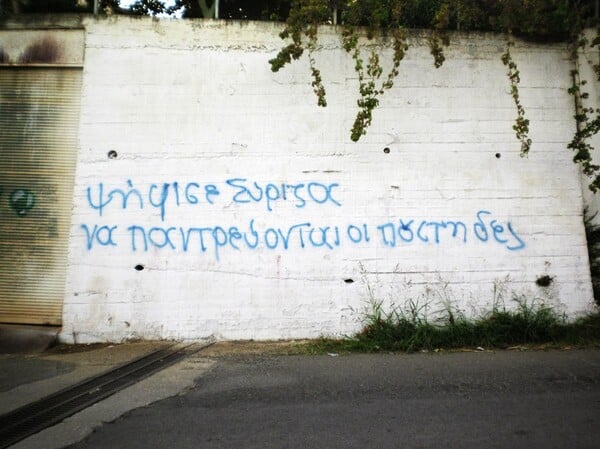 ψήφισε Συριζας
να παντρεύονται οι πουστηδες